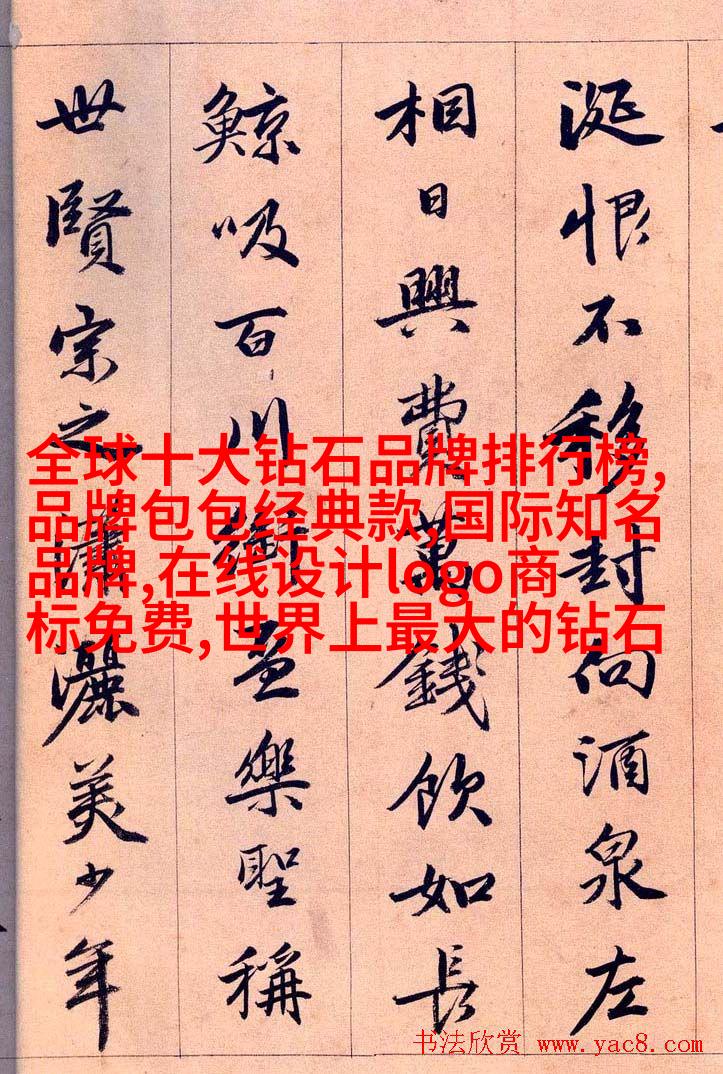 涎恨不移封向酒泉左
相日興費萬錢飲如長
鯨吸百川銜盃樂聖稱
世賢宗之瀟灑美少年
全球十大钻石品牌排行榜,
品牌包包经典款,国际知名
品牌,在线设计logo商
标免费,世界上最大的钻石
书法欣赏 www.yac8.com